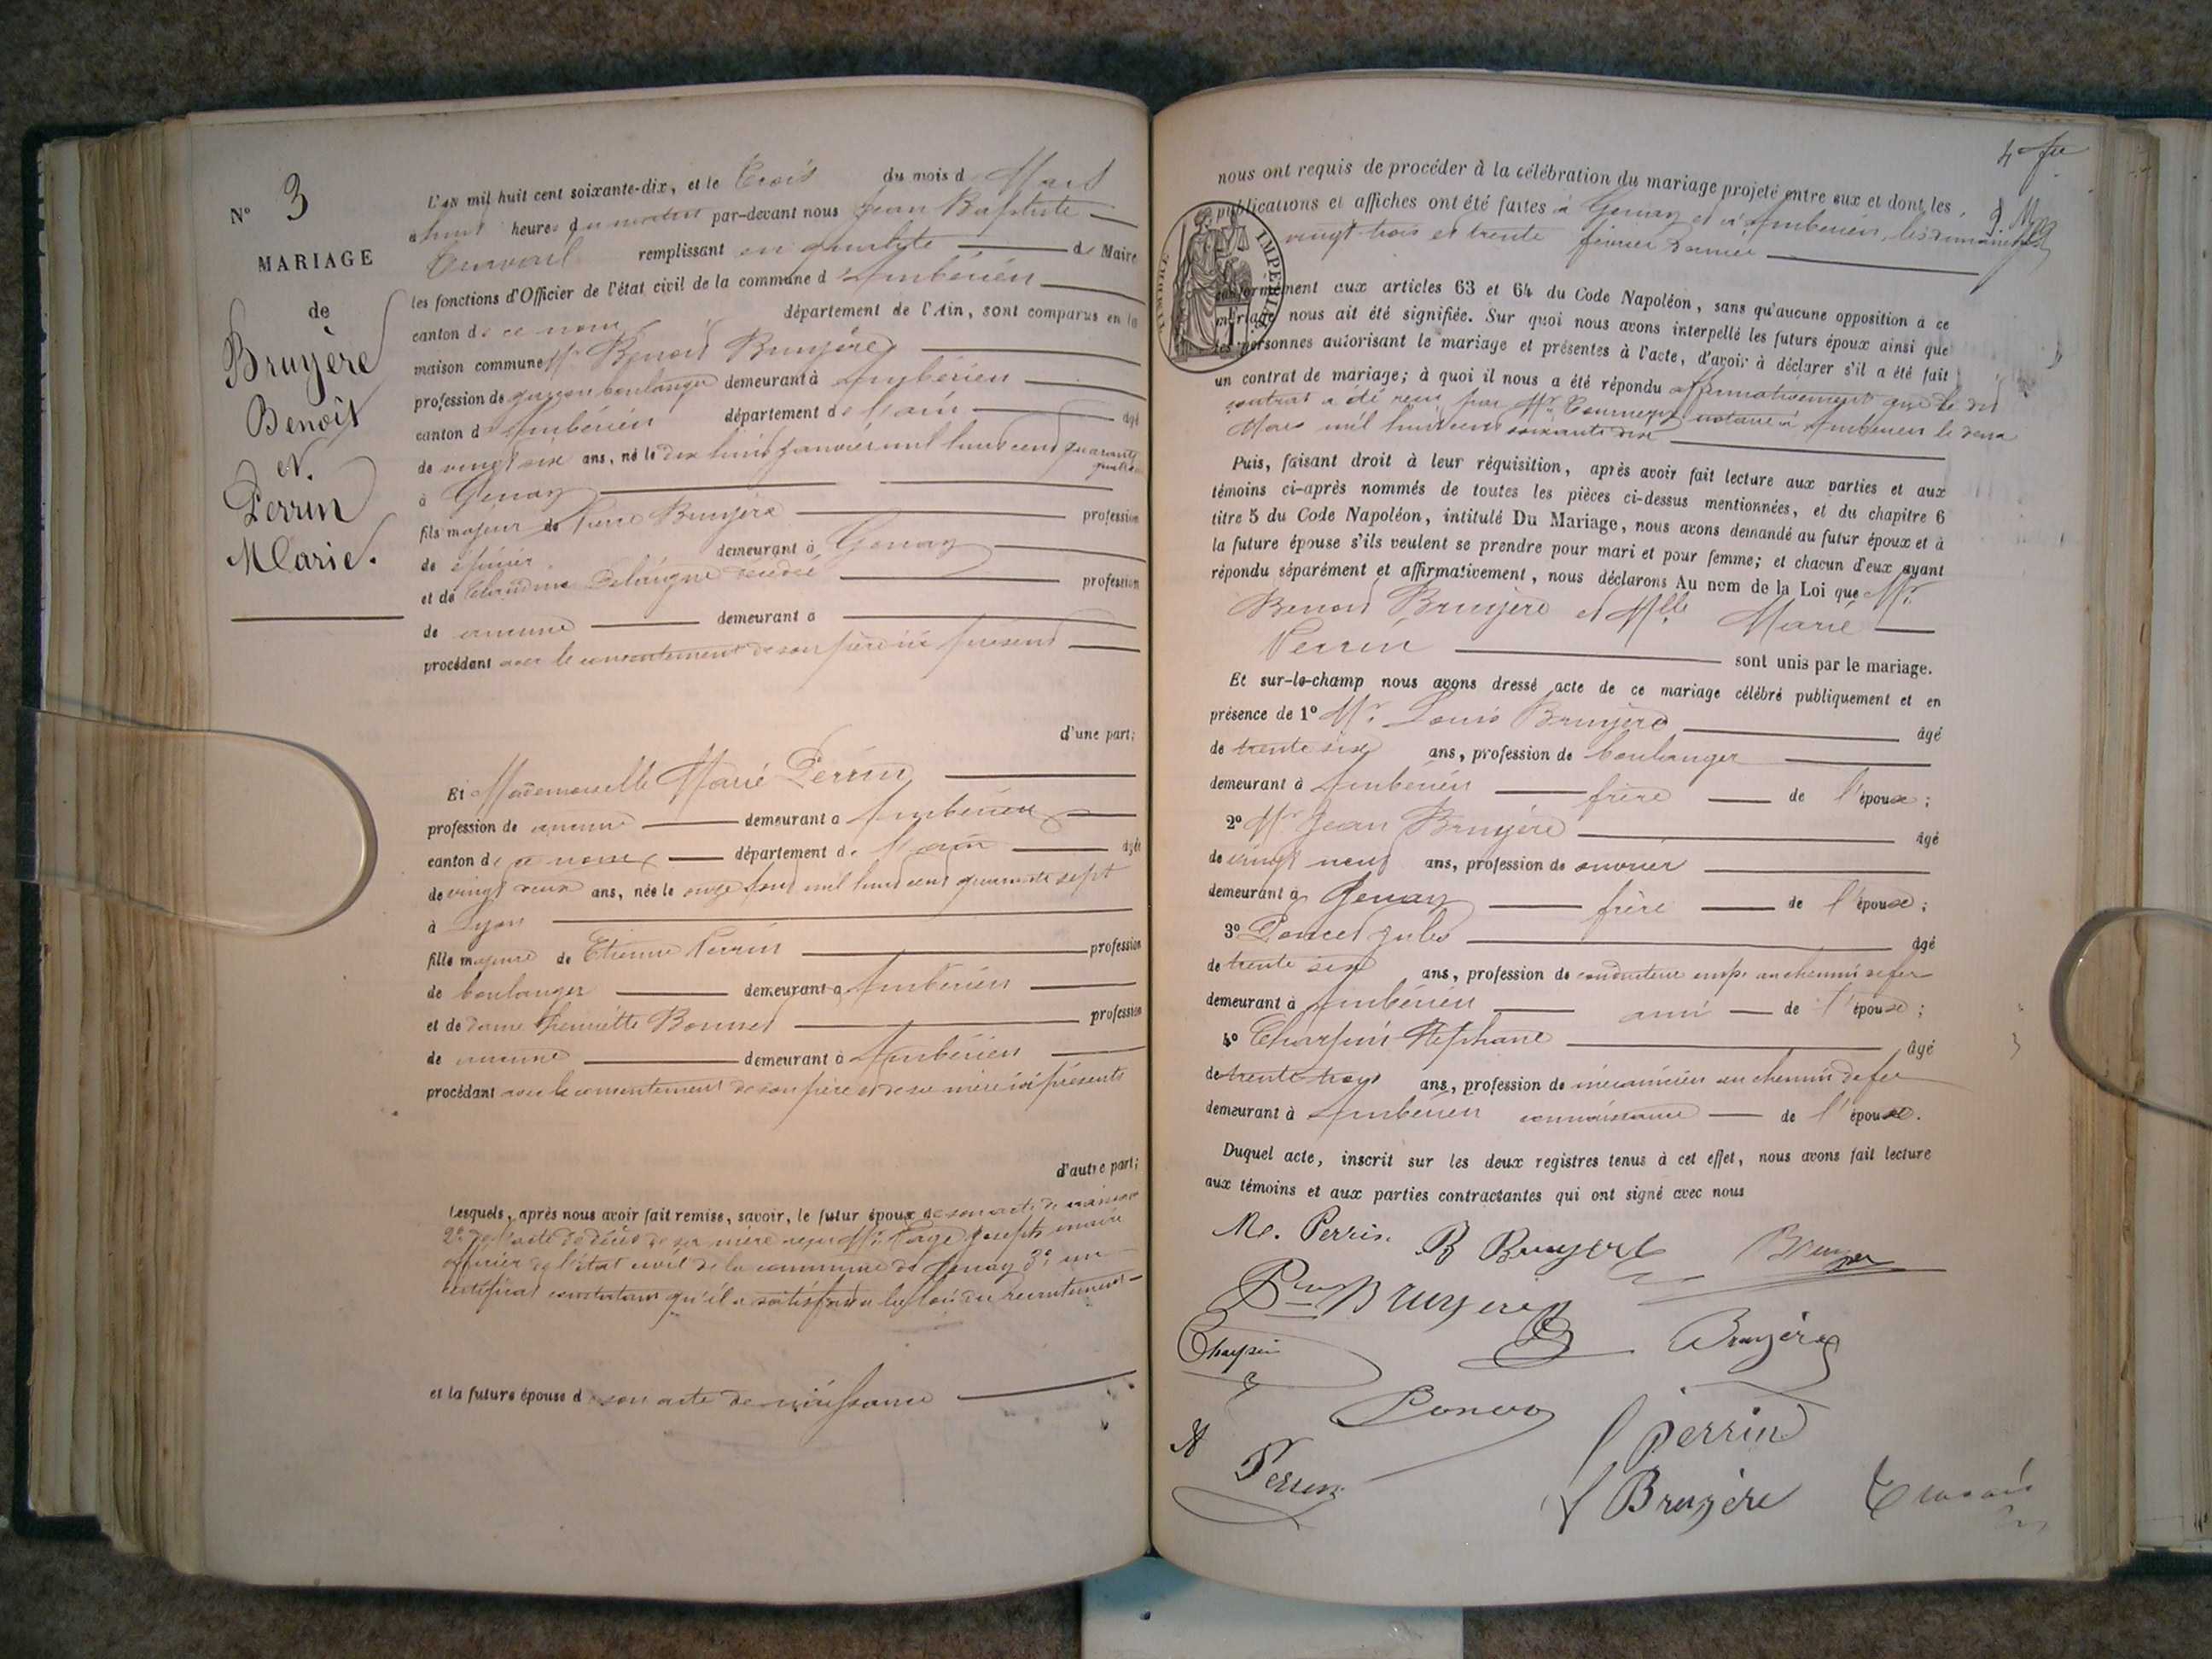 N° 3
MARIAGE
de
Bruyère
Benoit
et
Perrin
Marie.
L'an mil huit cent soixante-dix, et le Trois du mois d Mars
a huit heures du matin par-devant nous Jean Baptiste
remplissant en qualité de Maire
les fonctions d'Officier de l'état civil de la commune d'Ambérieu
canton de ce nom département de l'Ain, sont comparus en la
maison commune Mr Benoit Bruyère
profession de garçon boulanger demeurant à Ambérieu
canton d'Ambérieu département de l'ain âgé
de vingt six ans, né le dix huit janvier mil huit cent quarante
quatre
à Genay
fils majeur de Pierre Bruyère profession
de épicier demeurant à Genay
et de Claudine décédée profession
de aucune demeurant a
procédant avec le consentement de son père ici présent
d'une part;
Et Mademoiselle Marie Perrin
profession de aucune demeurant a Ambérieu
canton de ce nom département de l'ain âgée
de vingt deux ans, née le onze août mil huit cent quarante sept
à Lyon
fille majeure de Etienne Perrin profession
de boulanger demeurant a Ambérieu
et de dame henriette Bonnet profession
de aucune demeurant à Ambérieu
procédant avec le consentement de son père et de sa mère ici présents
d'autre part;
Lesquels, après nous avoir fait remise, savoir, le futur époux de son acte de naissance
2° de l'acte de décès de sa mère reçu Mr Joseph maire
officier de l'état civil de la commune de Genay 3° un
certificat constatant qu'il a satisfait à la loi du recrutement
et la future épouse de son acte de naissance
nous ont requis de procéder à la célébration du mariage projeté entre eux et dont les
publications et affiches ont été faites à Genay et à Ambérieu les dimanches
vingt trois et trente février dernier
TIMBRE IMPERIAL
conformément aux articles 63 et 64 du Code Napoléon, sans qu'aucune opposition à ce
mariage nous ait été signifiée. Sur quoi nous avons interpellé les futurs époux ainsi que
les personnes autorisant le mariage et présentes à l'acte, d'avoir à déclarer s'il a été fait
un contrat de mariage; à quoi il nous a été répondu affirmativement que le dit
contrat a été reçu par Mr notaire à Ambérieu le deux
Mars mil huit cent soixante dix
Puis, faisant droit à leur réquisition, après avoir fait lecture aux parties et aux
témoins ci-après nommés de toutes les pièces ci-dessus mentionnées, et du chapitre 6
titre 5 du Code Napoléon, intitulé Du Mariage, nous avons demandé au futur époux et à
la future épouse s'ils veulent se prendre pour mari et pour femme; et chacun d'eux ayant
répondu séparément et affirmativement, nous déclarons Au nom de la Loi que Mr.
Benoit Bruyère et Mlle Marie
Perrin sont unis par le mariage.
Et sur-le-champ nous avons dressé acte de ce mariage célébré publiquement et en
présence de 1° Mr. Louis Bruyère âgé
de trente six ans, profession de boulanger
demeurant à Ambérieu frère de l'époux;
2° Mr Jean Bruyère âgé
de vingt neuf ans, profession de ouvrier
demeurant à Genay frère de l'époux;
3° Poncet Jules âgé
de trente six ans, profession de conducteur au chemin de fer
demeurant à Ambérieu ami de l'épouse;
4° Charpin Stéphane âgé
de trente trois ans, profession de mécanicien au chemin de fer
demeurant à Ambérieu connaissance de l'épouse.
Duquel acte, inscrit sur les deux registres tenus à cet effet, nous avons fait lecture
aux témoins et aux parties contractantes qui ont signé avec nous
Me. Perrin B Bruyere
Bruyere
Charpin Bruyère
Poncet
Perrin
Perrin
Bruyère